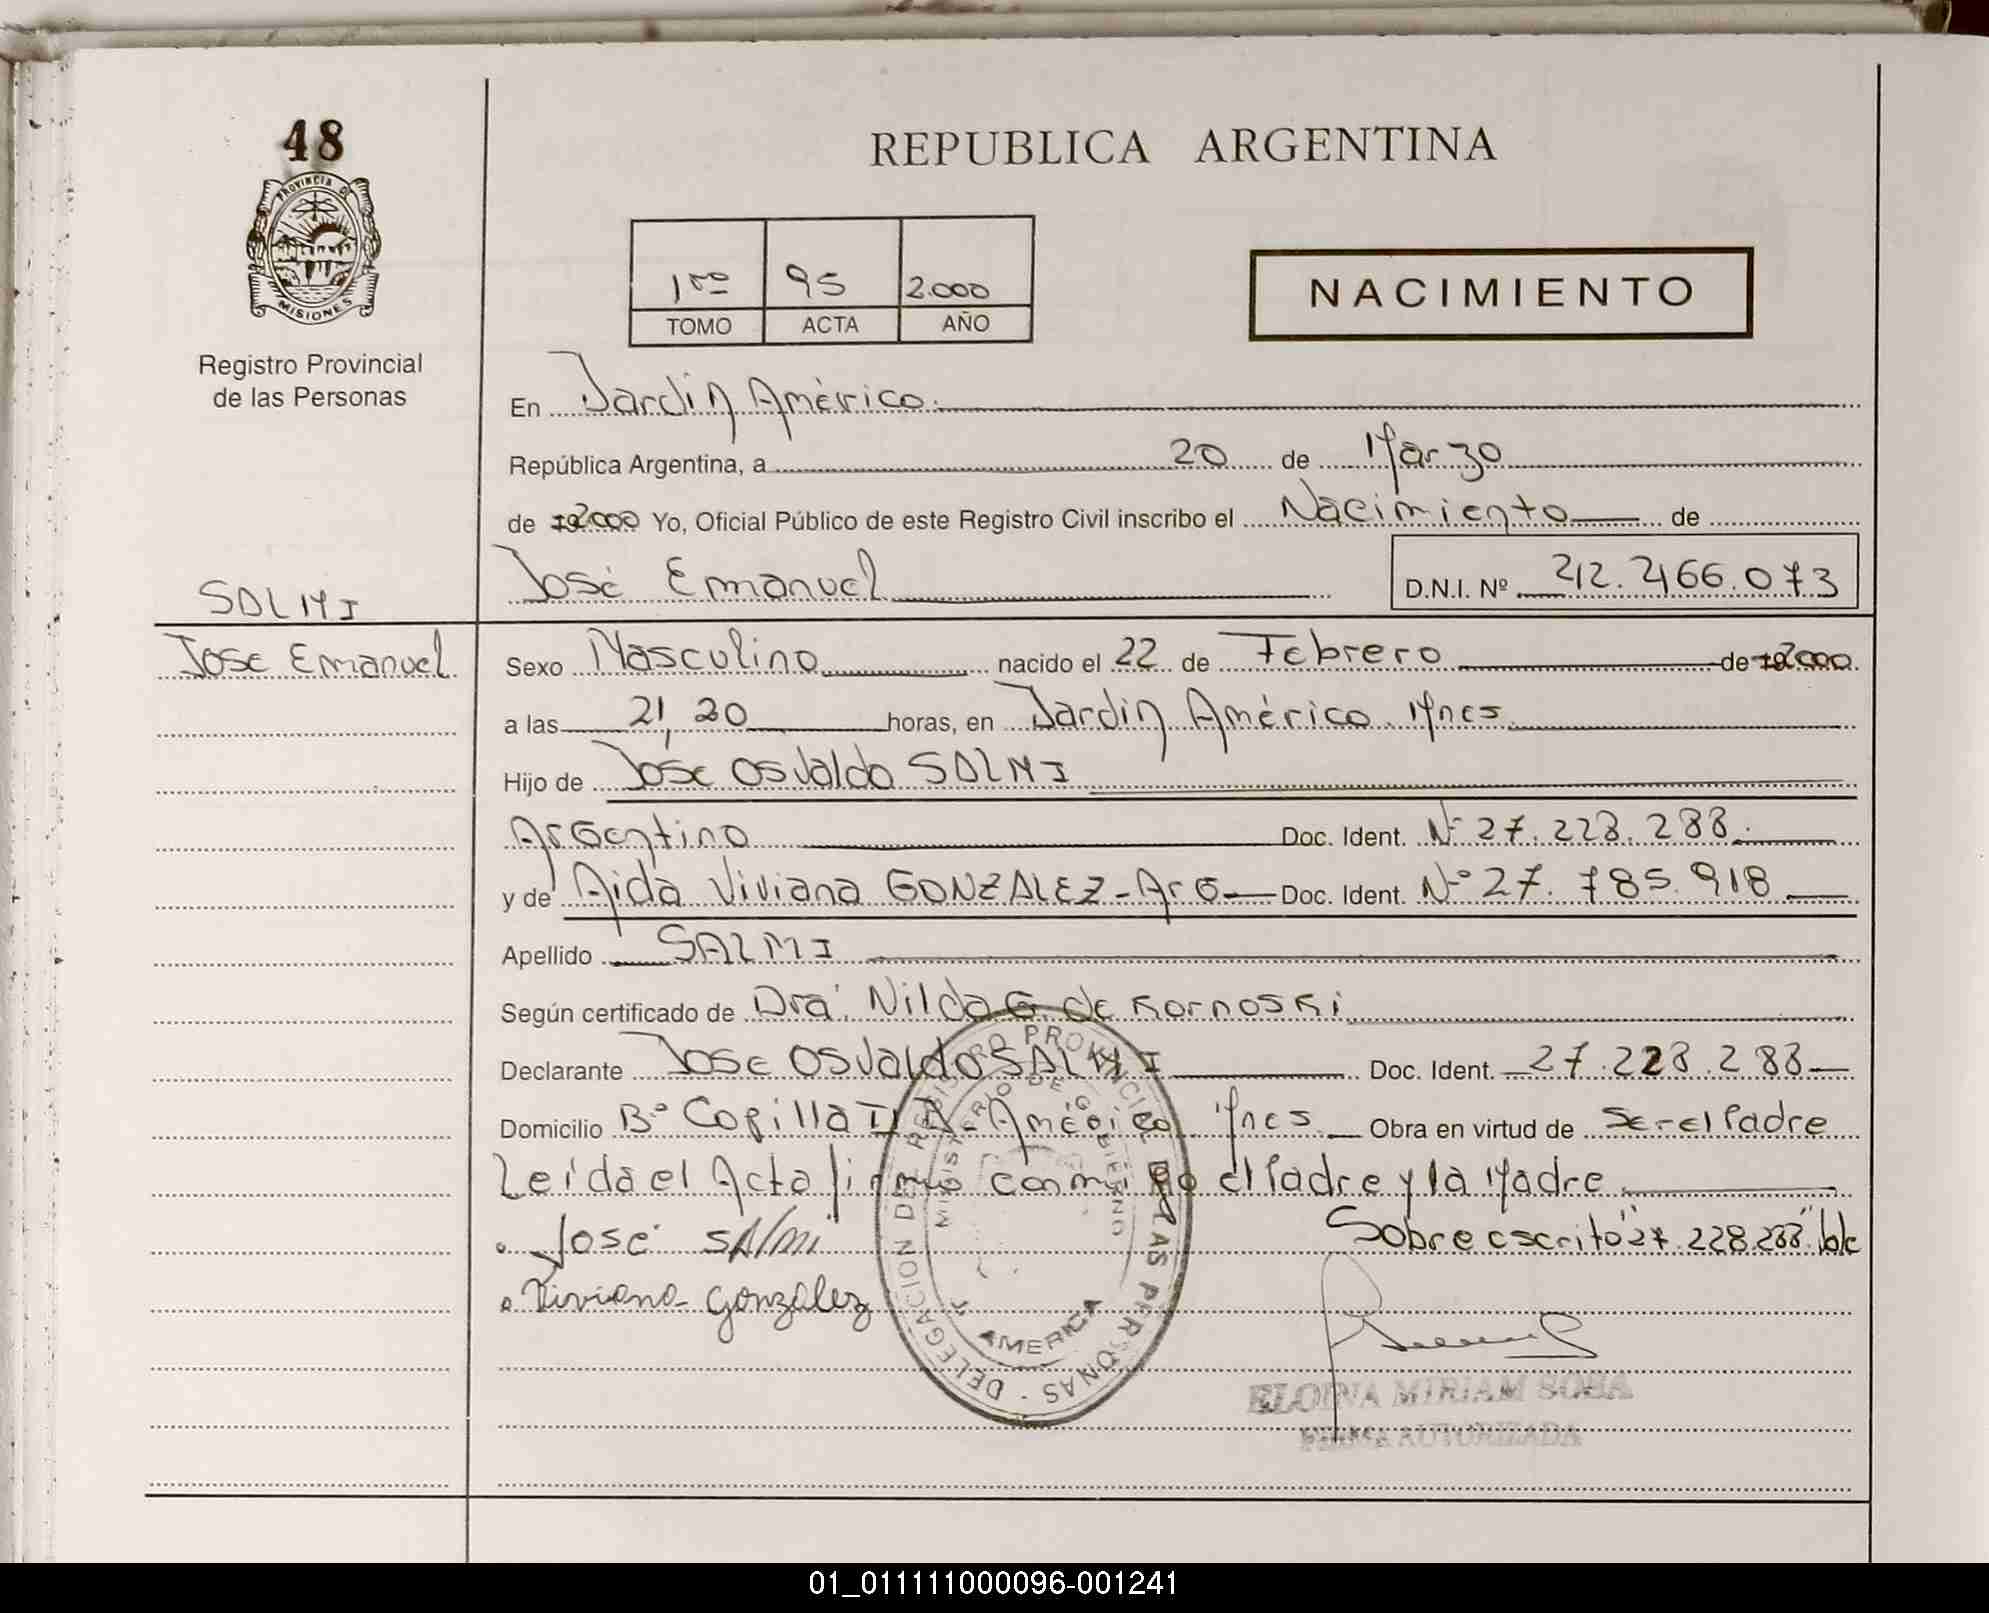 48
REPUBLICA ARGENTINA
PROVINCIA DE
MISIONES
Registro Provincial
de las Personas
1ro 95 2.000
TOMO ACTA AÑO
NACIMIENTO
En Jardín América
República Argentina, a 20 de Marzo
de 2000 Yo, Oficial Público de este Registro Civil inscribo el Nacimiento de
José Emanuel D.N.I. Nº 42.466.073
SALMI
Jose Emanuel
Sexo Masculino nacido el 22 de Febrero de 2000
a las 21,20 horas, en Jardín América. Mnes
Hijo de José Osvaldo SALMI
Argentino Doc. Ident. Nº 27.228.288.
y de Aida Viviana GONZALEZ-Arg Doc. Ident. Nº 27.785.918
Apellido SALMI
Según certificado de Dra. Nilda G de Kornoski
Declarante Jose Osvaldo SALMI Doc. Ident. 27.228.288
Domicilio Bº Capilla II J. América Mnes. Obra en virtud de Ser el Padre
Leída el Acta firman conmigo el Padre y la Madre
José SAlmi Sobre escrito "27.228.288" Vale
Viviana Gonzalez
DELEGACION DEL REGISTRO PROVINCIAL DE LAS PERSONAS
MINISTERIO DE GOBIERNO
J. AMERICA
ELOINA MIRIAM SOSA
FIRMA AUTORIZADA
01_011111000096-001241